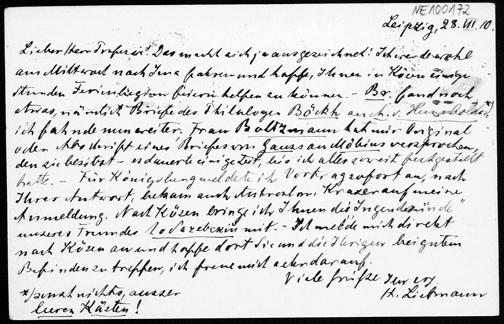 NE100172
Leipzig, 28. VII. 10.
Lieber Herr Professor! Das macht sich ja ausgezeichnet! Ich werde wohl
am Mittwoch nach Jena fahren und hoffe, Ihnen in Kösen einige
Stunden Ferienbeginn feiern helfen zu können. – Br. fand noch
etwas, nämlich Briefe des Philologen Böckh an A. v. Humboldt *)
ich fahnde nun weiter. Frau Boltzmann hat mir Original
oder Abschrift eines Briefes von Gauss an Möbius versprochen,
den sie besitzt – es dauerte einige Zeit, bis ich alles soweit festgestellt
hatte. – Für Königsberg meldete ich Vortrag sofort an, nach
Ihrer Antwort, bekam auch Antwort von Krazer auf meine
Anmeldung. Nach Kösen bringe ich Ihnen die "Jugendsünde"
unseres Freundes Lobatschefskij mit. – Ich melde mich direkt
nach Kösen an und hoffe dort Sie und die Ihrigen bei gutem
Befinden zu treffen, ich freue mich sehr darauf.
Viele Grüße Ihr erg
H. Liebmann
*) sonst nichts, ausser
leeren Kästen!